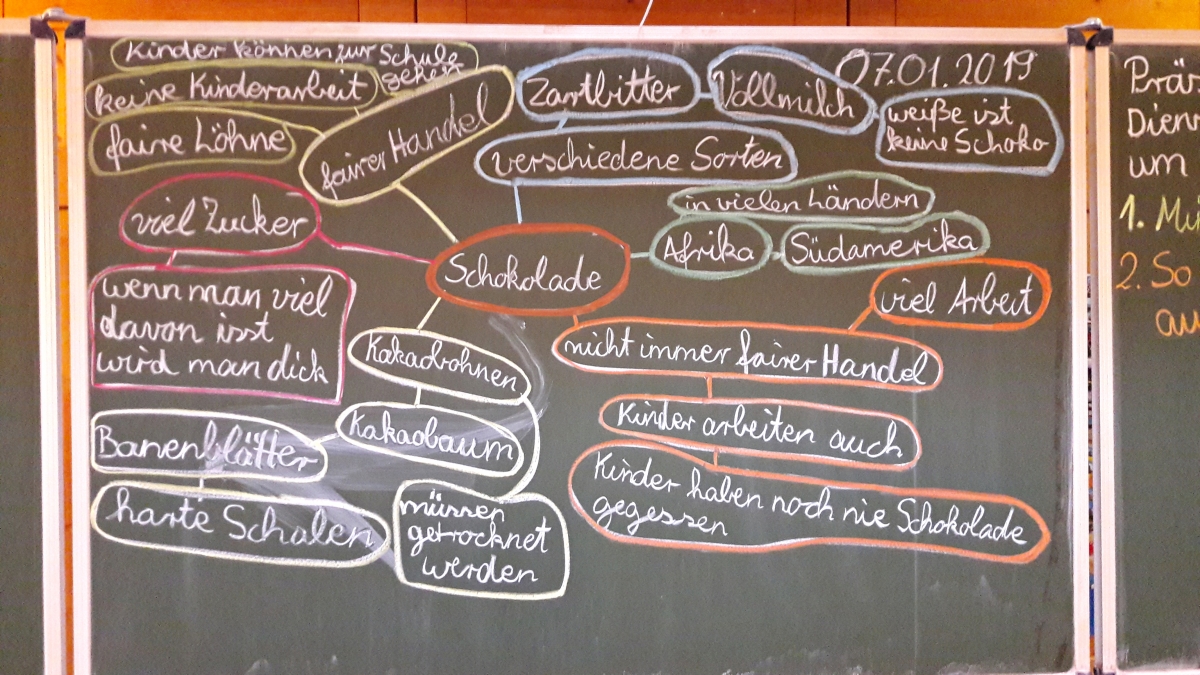 Kinder können zur Schule
gehen
keine Kinderarbeit
faire Löhne
fairer Handel
Zartbitter
Vollmilch
07.01.2019
weiße ist
keine Schoko
verschiedene Sorten
viel Zucker
wenn man viel
davon isst
wird man dick
in vielen Ländern
Afrika
Südamerika
Schokolade
viel Arbeit
nicht immer fairer Handel
Kinder arbeiten auch
Kinder haben noch nie Schokolade
gegessen
Kakaobohnen
Kakaobaum
Banenblätter
harte Schalen
müssen
getrocknet
werden
Dienr
um
1.
2. So